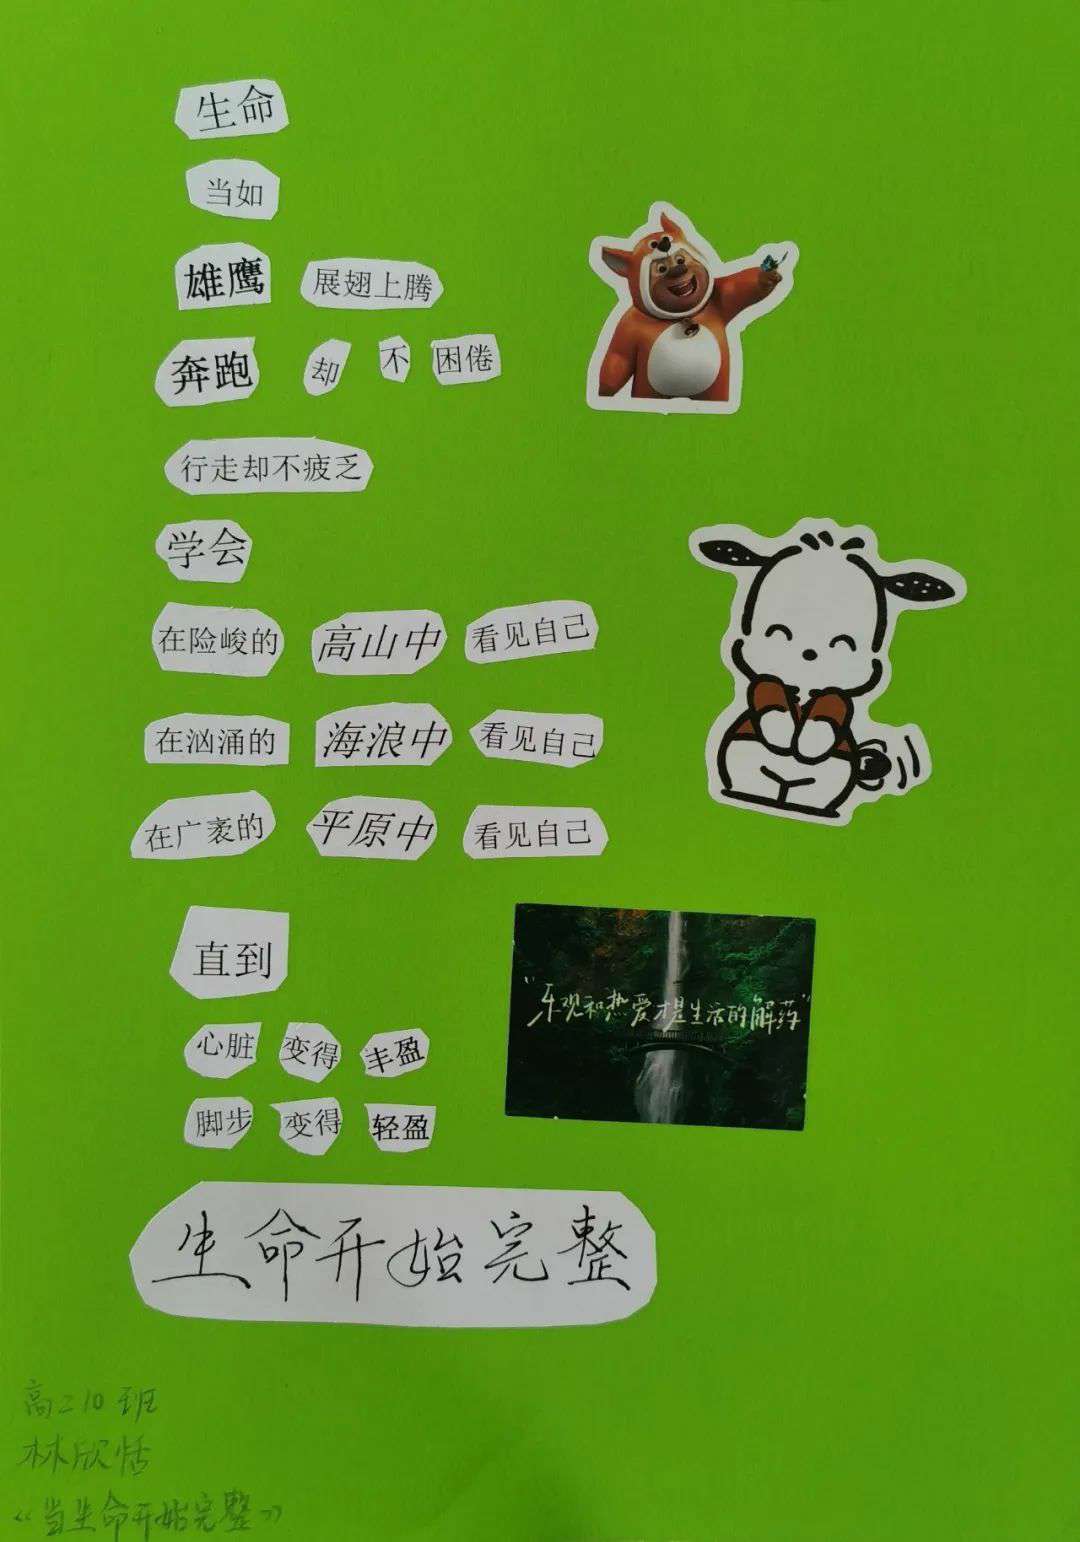 生命
当如
雄鹰 展翅上腾
奔跑 却 不 困倦
行走却不疲乏
学会
在险峻的 高山中 看见自己
在汹涌的 海浪中 看见自己
在广袤的 平原中 看见自己
直到
"乐观和热爱才是生活的解药"
心脏 变得 丰盈
脚步 变得 轻盈
生命开始完整
高二10班
林欣恬
《当生命开始完整》